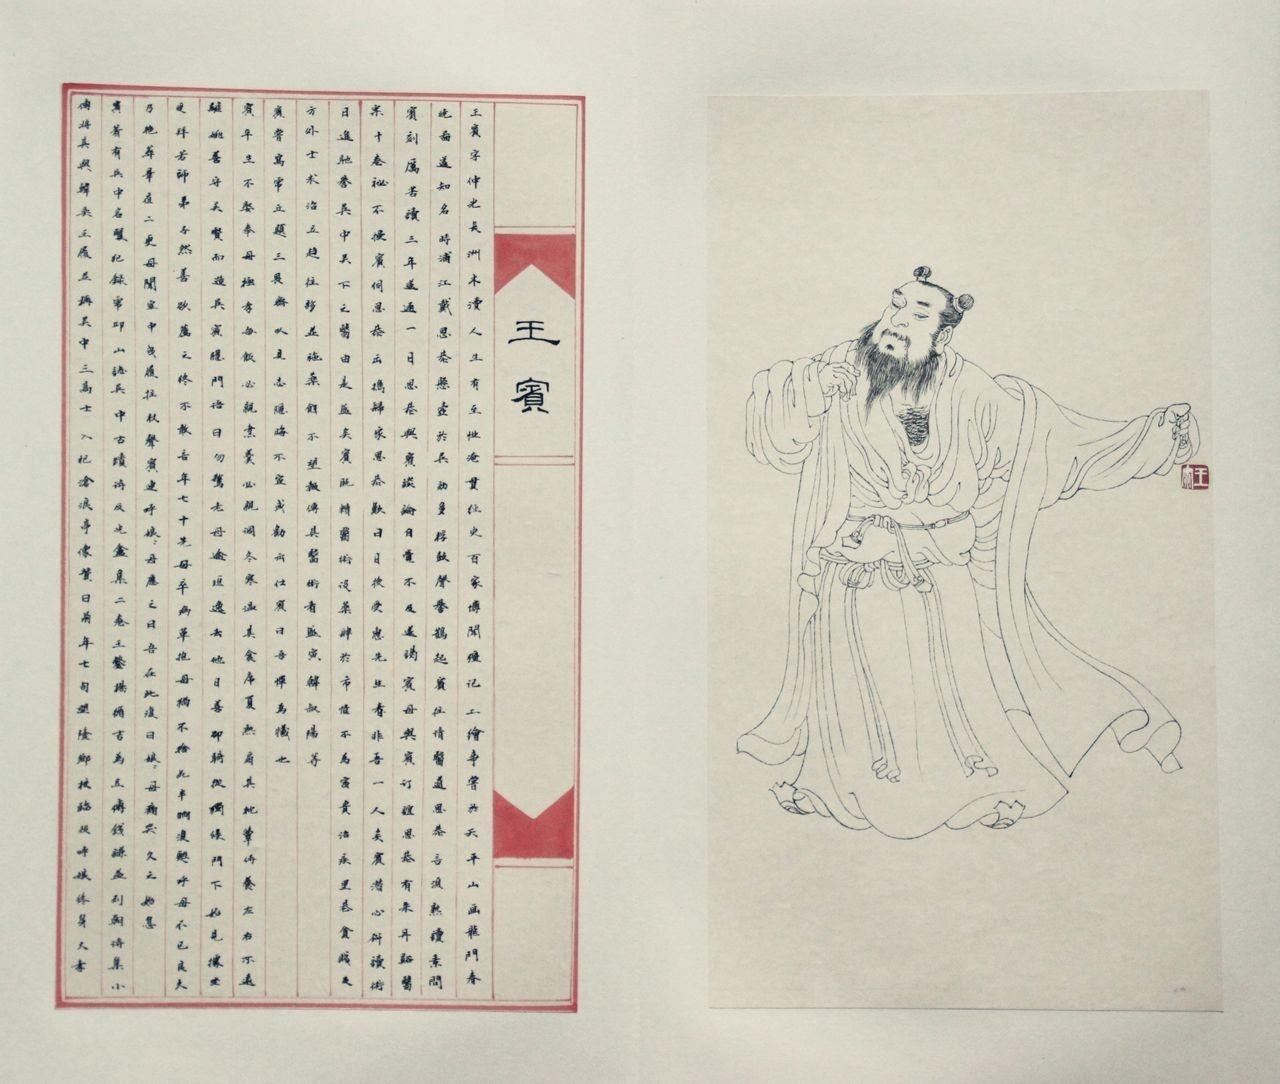 王賓
王賓字仲光長洲木瀆人生有至性淹貫經史百家博聞彊記工繪事嘗於天平山畫龍門春
晚圖遂知名時浦江戴思恭懸壺於吳劾多桴鼓聲譽鵲起賓往情醫道思恭言須熟讀素問
賓刻厲苦讀三年遂通一日思恭與賓談論自覺不及遂謁賓母與賓訂誼思恭有朱丹谿醫
案十卷祕不授賓伺思恭出攜歸家思恭歎曰日後受惠先生者非吾一人矣賓潛心研讀術
日進馳譽吳中吳下之醫由是益矣賓既精醫術設藥肆於市惟不為富貴治疾里巷貧賤及
方外士求治立趨往診並施藥餌不望報傳其醫術者盛寅韓叔暘等
賓嘗寓常立題三畏齋以見志隱晦不宣或勸而仕賓曰吾憚為犧也
賓年生不娶奉母極孝每飯必親烹羹必親調冬寒溫其衾席夏熱扇其枕簟侍養左右不遠
離姚善守吳賢而造焉賓隱門語曰勿驚老母逾垣逸去他日善卻騎從獨候門下始見據坐
受拜若師弟子然善欲薦之終不敢告年七十先母卒病革抱母猶不捨死半晌復甦呼母不已良久
乃絕葬畢夜二更母聞室中曳履拄杖聲賓連呼娘〻母應之曰吾在此復曰娘〻母痛哭久之始息
賓著有吳中名醫紀錄常邱山誌吳中古蹟詩及光盦集二卷王鏊楊循吉為立傳錢謙益列朝詩集小
傳將其與韓奕王履並稱吳中三高士入祀滄浪亭像贊曰年七旬塑鄉校臨歿呼娘終身大孝
王賓